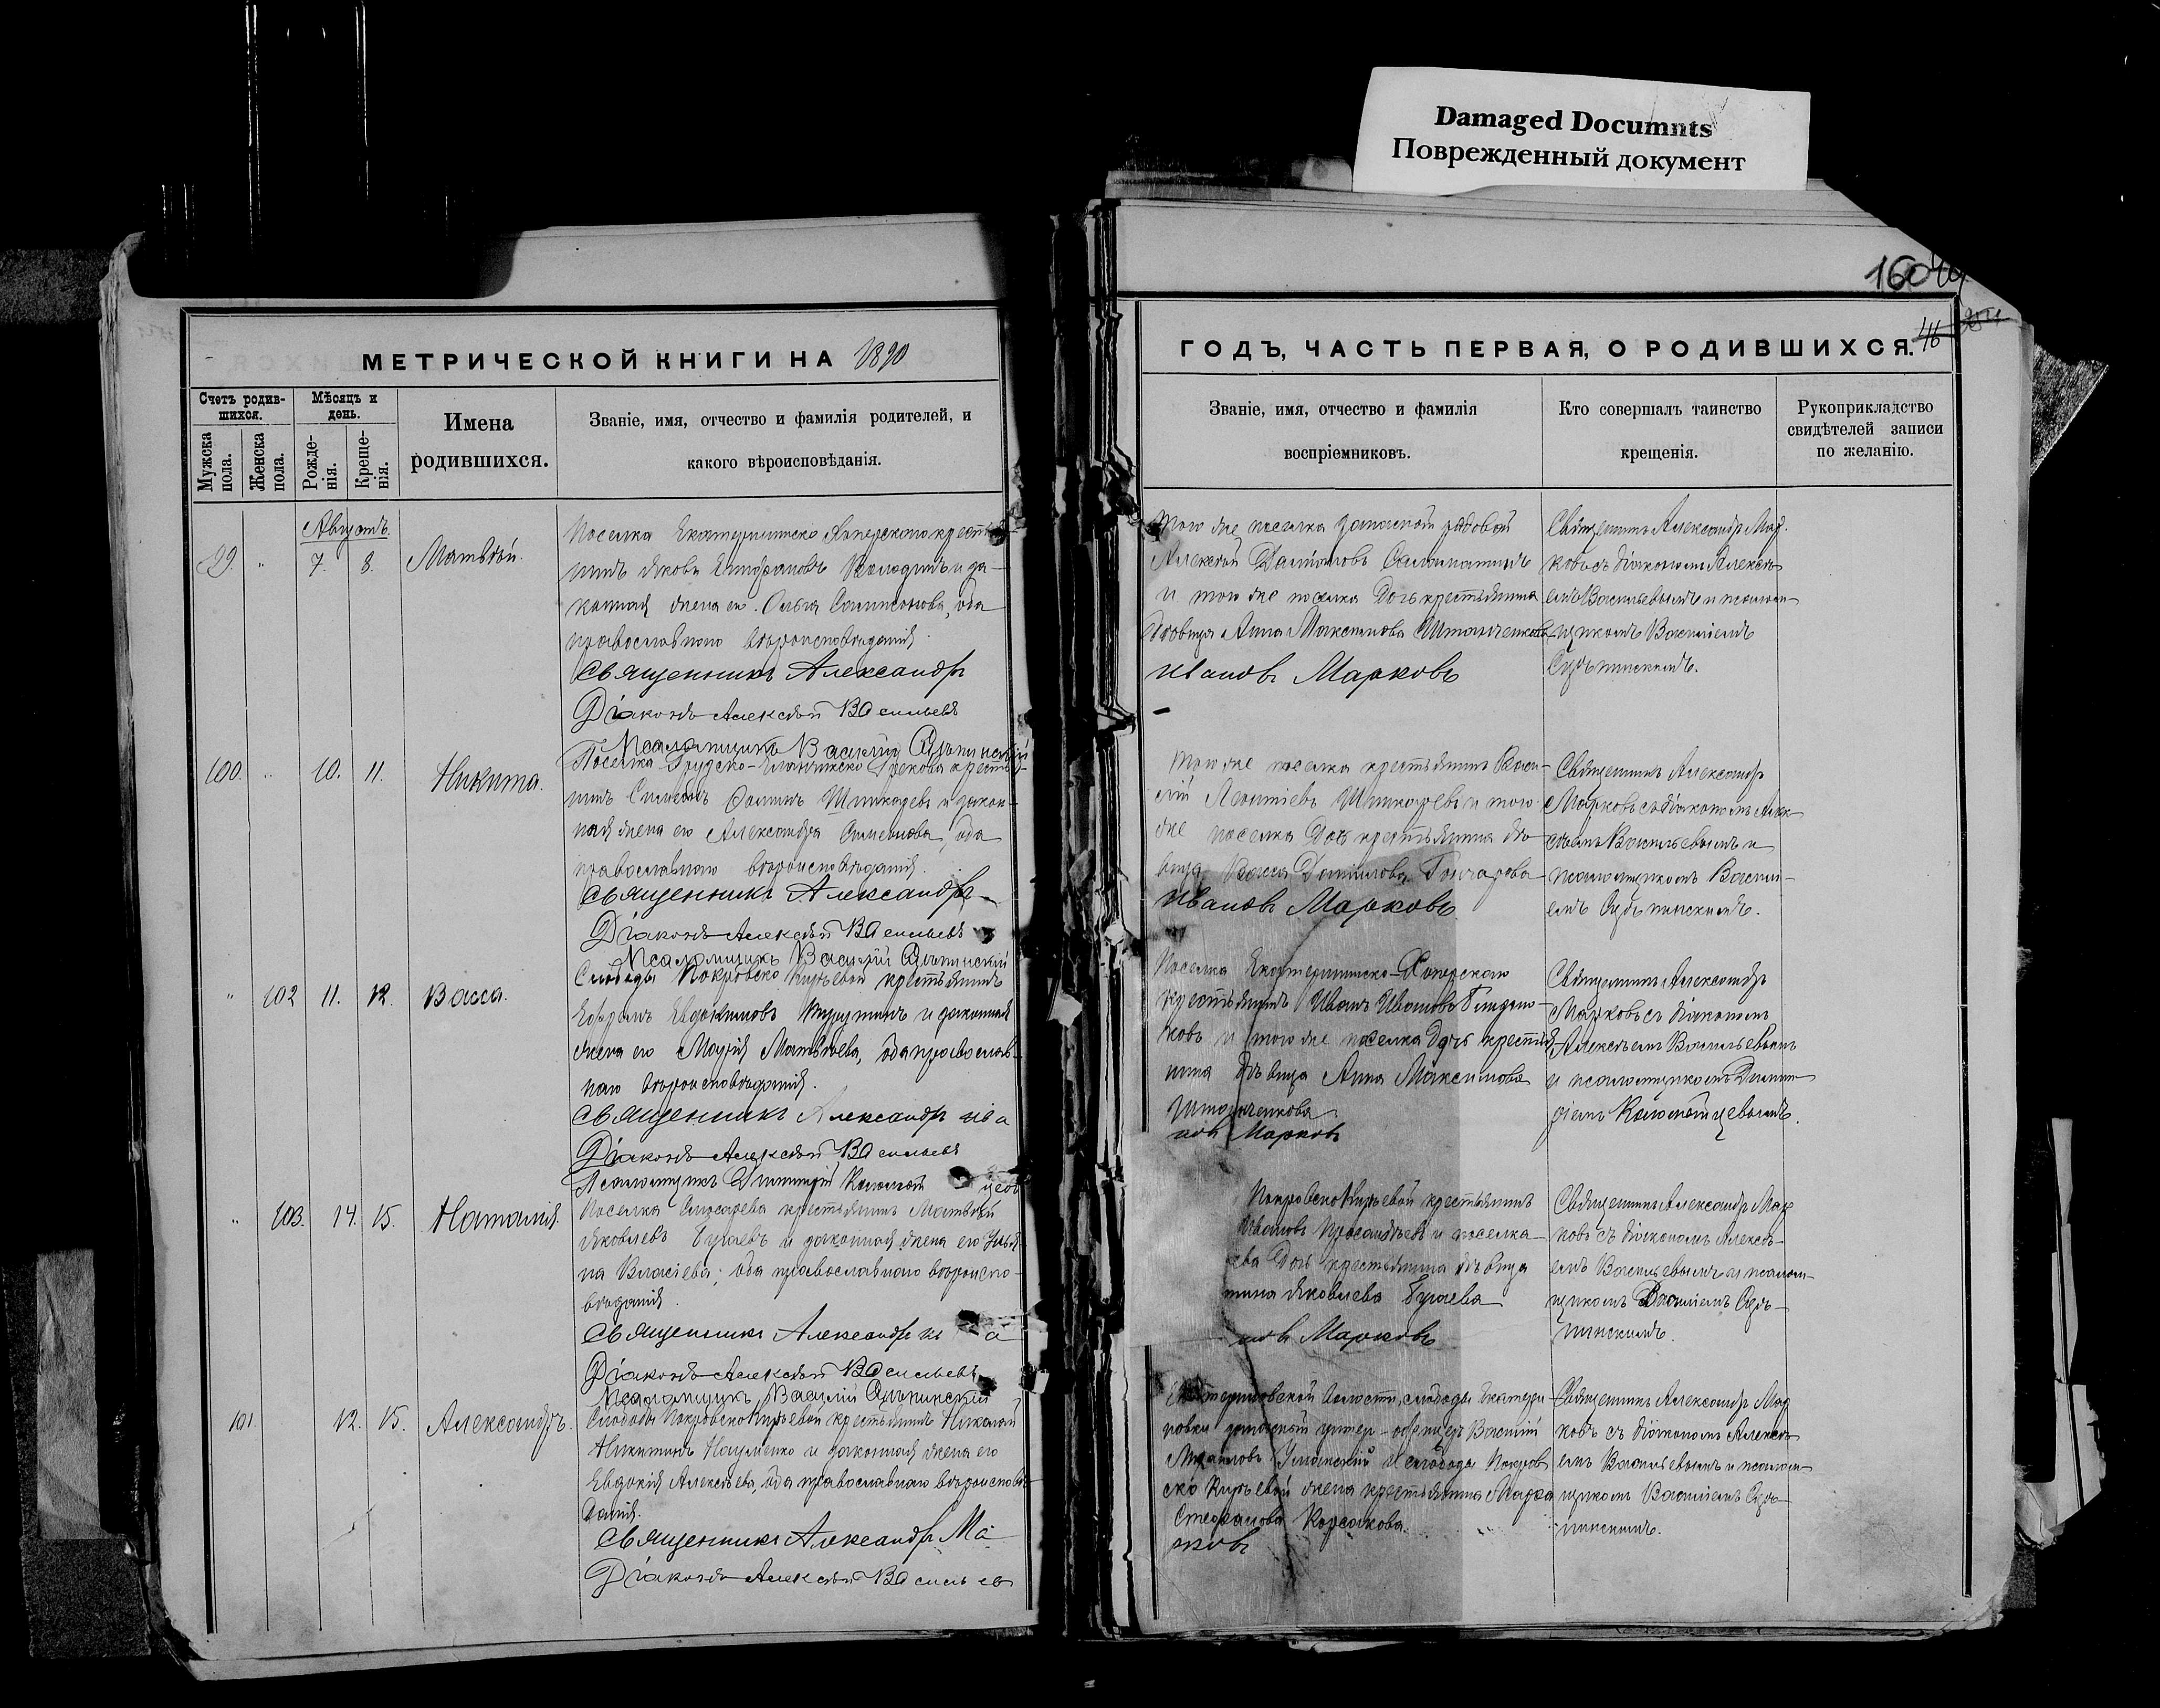 Damaged Documnts
Поврежденный документ
160
46
МЕТРИЧЕСКОЙ КНИГИ НА 1890
ГОДЪ, ЧАСТЬ ПЕРВАЯ, О РОДИВШИХСЯ.
Счетъ родив-
шихся.
Мужска пола.
Женска пола.
Мѣсяцъ и
день.
Рожде-
нія.
Креще-
нія.
Имена
родившихся.
Званіе, имя, отчество и фамилія родителей, и
какого вѣроисповѣданія.
Званіе, имя, отчество и фамилія
воспріемниковъ.
Кто совершалъ таинство
крещенія.
Рукоприкладство
свидѣтелей записи
по желанію.
Августъ
99. " 7. 8. Матвѣй.
Поселка Екатерининско Хоперскаго крестья
нинъ Яковъ и за-
конная жена его Ольга Самсонова, оба
православнаго вѣроисповѣданія.
Священникъ Александръ
Діаконъ Алексѣй Васильевъ
Псаломщикъ Василій
Того же поселка запасной рядовой
Алексѣй
и того же поселка дочь крестьянина
дѣвица Анна Максимова Штанченкова
Ивановъ Марковъ
Священникъ Александръ Мар-
ковъ съ діакономъ Алексѣ-
емъ Васильевымъ и псалом-
щикомъ Василіемъ
100. " 10. 11. Никита.
Поселка Грекова крестья-
нинъ Симеонъ и закон-
ная жена его Александра Симеонова, оба
православнаго вѣроисповѣданія.
Священникъ Александръ
Діаконъ Алексѣй Васильевъ
Псаломщикъ Василій
Того же поселка крестьянинъ Васи-
лій Леонтіевъ и того
же поселка дочь крестьянина дѣ-
вица Васса Данилова Гончарова
Ивановъ Марковъ
Священникъ Александръ
Марковъ съ діакономъ Алек-
сѣемъ Васильевымъ и
псаломщикомъ Васили-
емъ
" 102 11. 12. Васса.
Слободы Покровско Кирѣевой крестьянинъ
Ефремъ Евдокимовъ и законная
жена его Марія Матвѣева, оба православ-
наго вѣроисповѣданія.
Священникъ Александръ Ива
Діаконъ Алексѣй Васильевъ
Псаломщикъ Димитрій Коломойцевъ
Поселка Екатерининско-Хоперскаго
крестьянинъ Иванъ Ивановъ
ковъ и того же поселка дочь крестья
нина дѣвица Анна Максимова
Штанченкова
новъ Марковъ
Священникъ Александръ
Марковъ съ діакономъ
Алексѣемъ Васильевымъ
и псаломщикомъ Димит-
ріемъ Коломойцевымъ.
" 103. 14. 15. Наталія.
Поселка Слюсарева крестьянинъ Матвѣй
Яковлевъ Бугаевъ и законная жена его Улья-
на Власіева; оба православнаго вѣроиспо-
вѣданія.
Священникъ Александръ И а
Діаконъ Алексѣй Васильевъ
Псаломщикъ Василій
Покровско Кирѣевой крестьянинъ
Ивановъ и поселка
ева дочь крестьянина дѣвица
Яковлева Бугаева
новъ Марковъ
Священникъ Александръ Мар
ковъ съ діакономъ Алексѣ-
емъ Васильевымъ и псалом-
щикомъ Василіемъ
101. 12. 15. Александръ.
Слободы Покровско Кирѣевой крестьянинъ Николай
Никитинъ Науменко и законная жена его
Евдокія Алексѣева, оба православнаго вѣроисповѣ-
данія.
Священникъ Александръ Ма
Діаконъ Алексѣй Васильев
волости, слободы Екатери-
новки запасный унтеръ-офицеръ Василій
Михайловъ Уманский и слободы Покров
ско Кирѣевой жена крестьянина Марѳа
Стефанова Корсакова.
рковъ
Священникъ Александръ Мар
ковъ съ діакономъ Алексѣ
емъ Васильевымъ и псалом-
щикомъ Василіемъ